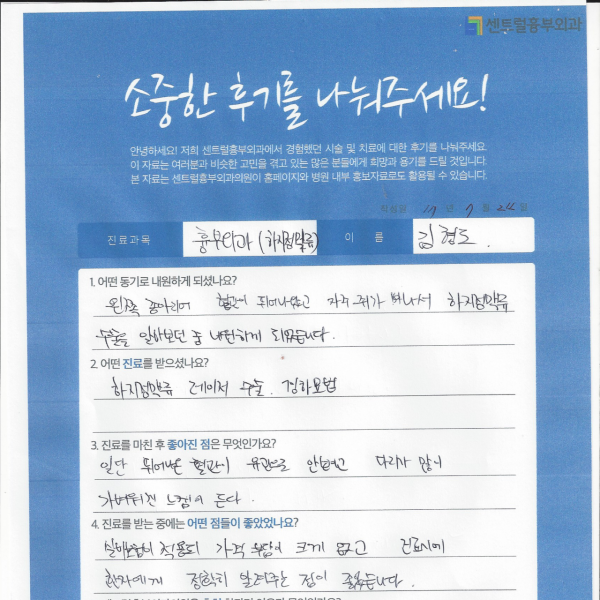 센트럴흉부외과
소중한 후기를 나눠주세요!
안녕하세요! 저희 센트럴흉부외과에서 경험했던 시술 및 치료에 대한 후기를 나눠주세요.
이 자료는 여러분과 비슷한 고민을 겪고 있는 많은 분들에게 희망과 용기를 드릴 것입니다.
본 자료는 센트럴흉부외과의원이 홈페이지와 병원 내부 홍보자료로도 활용될 수 있습니다.
작성일 17년 7월 24일
진료과목 흉부외과 (하지정맥류) 이 름 김형도.
1. 어떤 동기로 내원하게 되셨나요?
왼쪽 종아리에 혈관이 튀어나왔고 자주 쥐가 나서 하지정맥류
수술을 알아보던 중 내원하게 되었습니다.
2. 어떤 진료를 받으셨나요?
하지정맥류 레이저 수술. 경화요법
3. 진료를 마친 후 좋아진 점은 무엇인가요?
일단 튀어나온 혈관이 육안으로 안보이고 다리가 많이
가벼워진 느낌이 든다.
4. 진료를 받는 중에는 어떤 점들이 좋았었나요?
실비보험이 적용되 가격 부담이 크게 없고 진료시에
환자에게 정확히 알려주는 점이 좋았습니다.